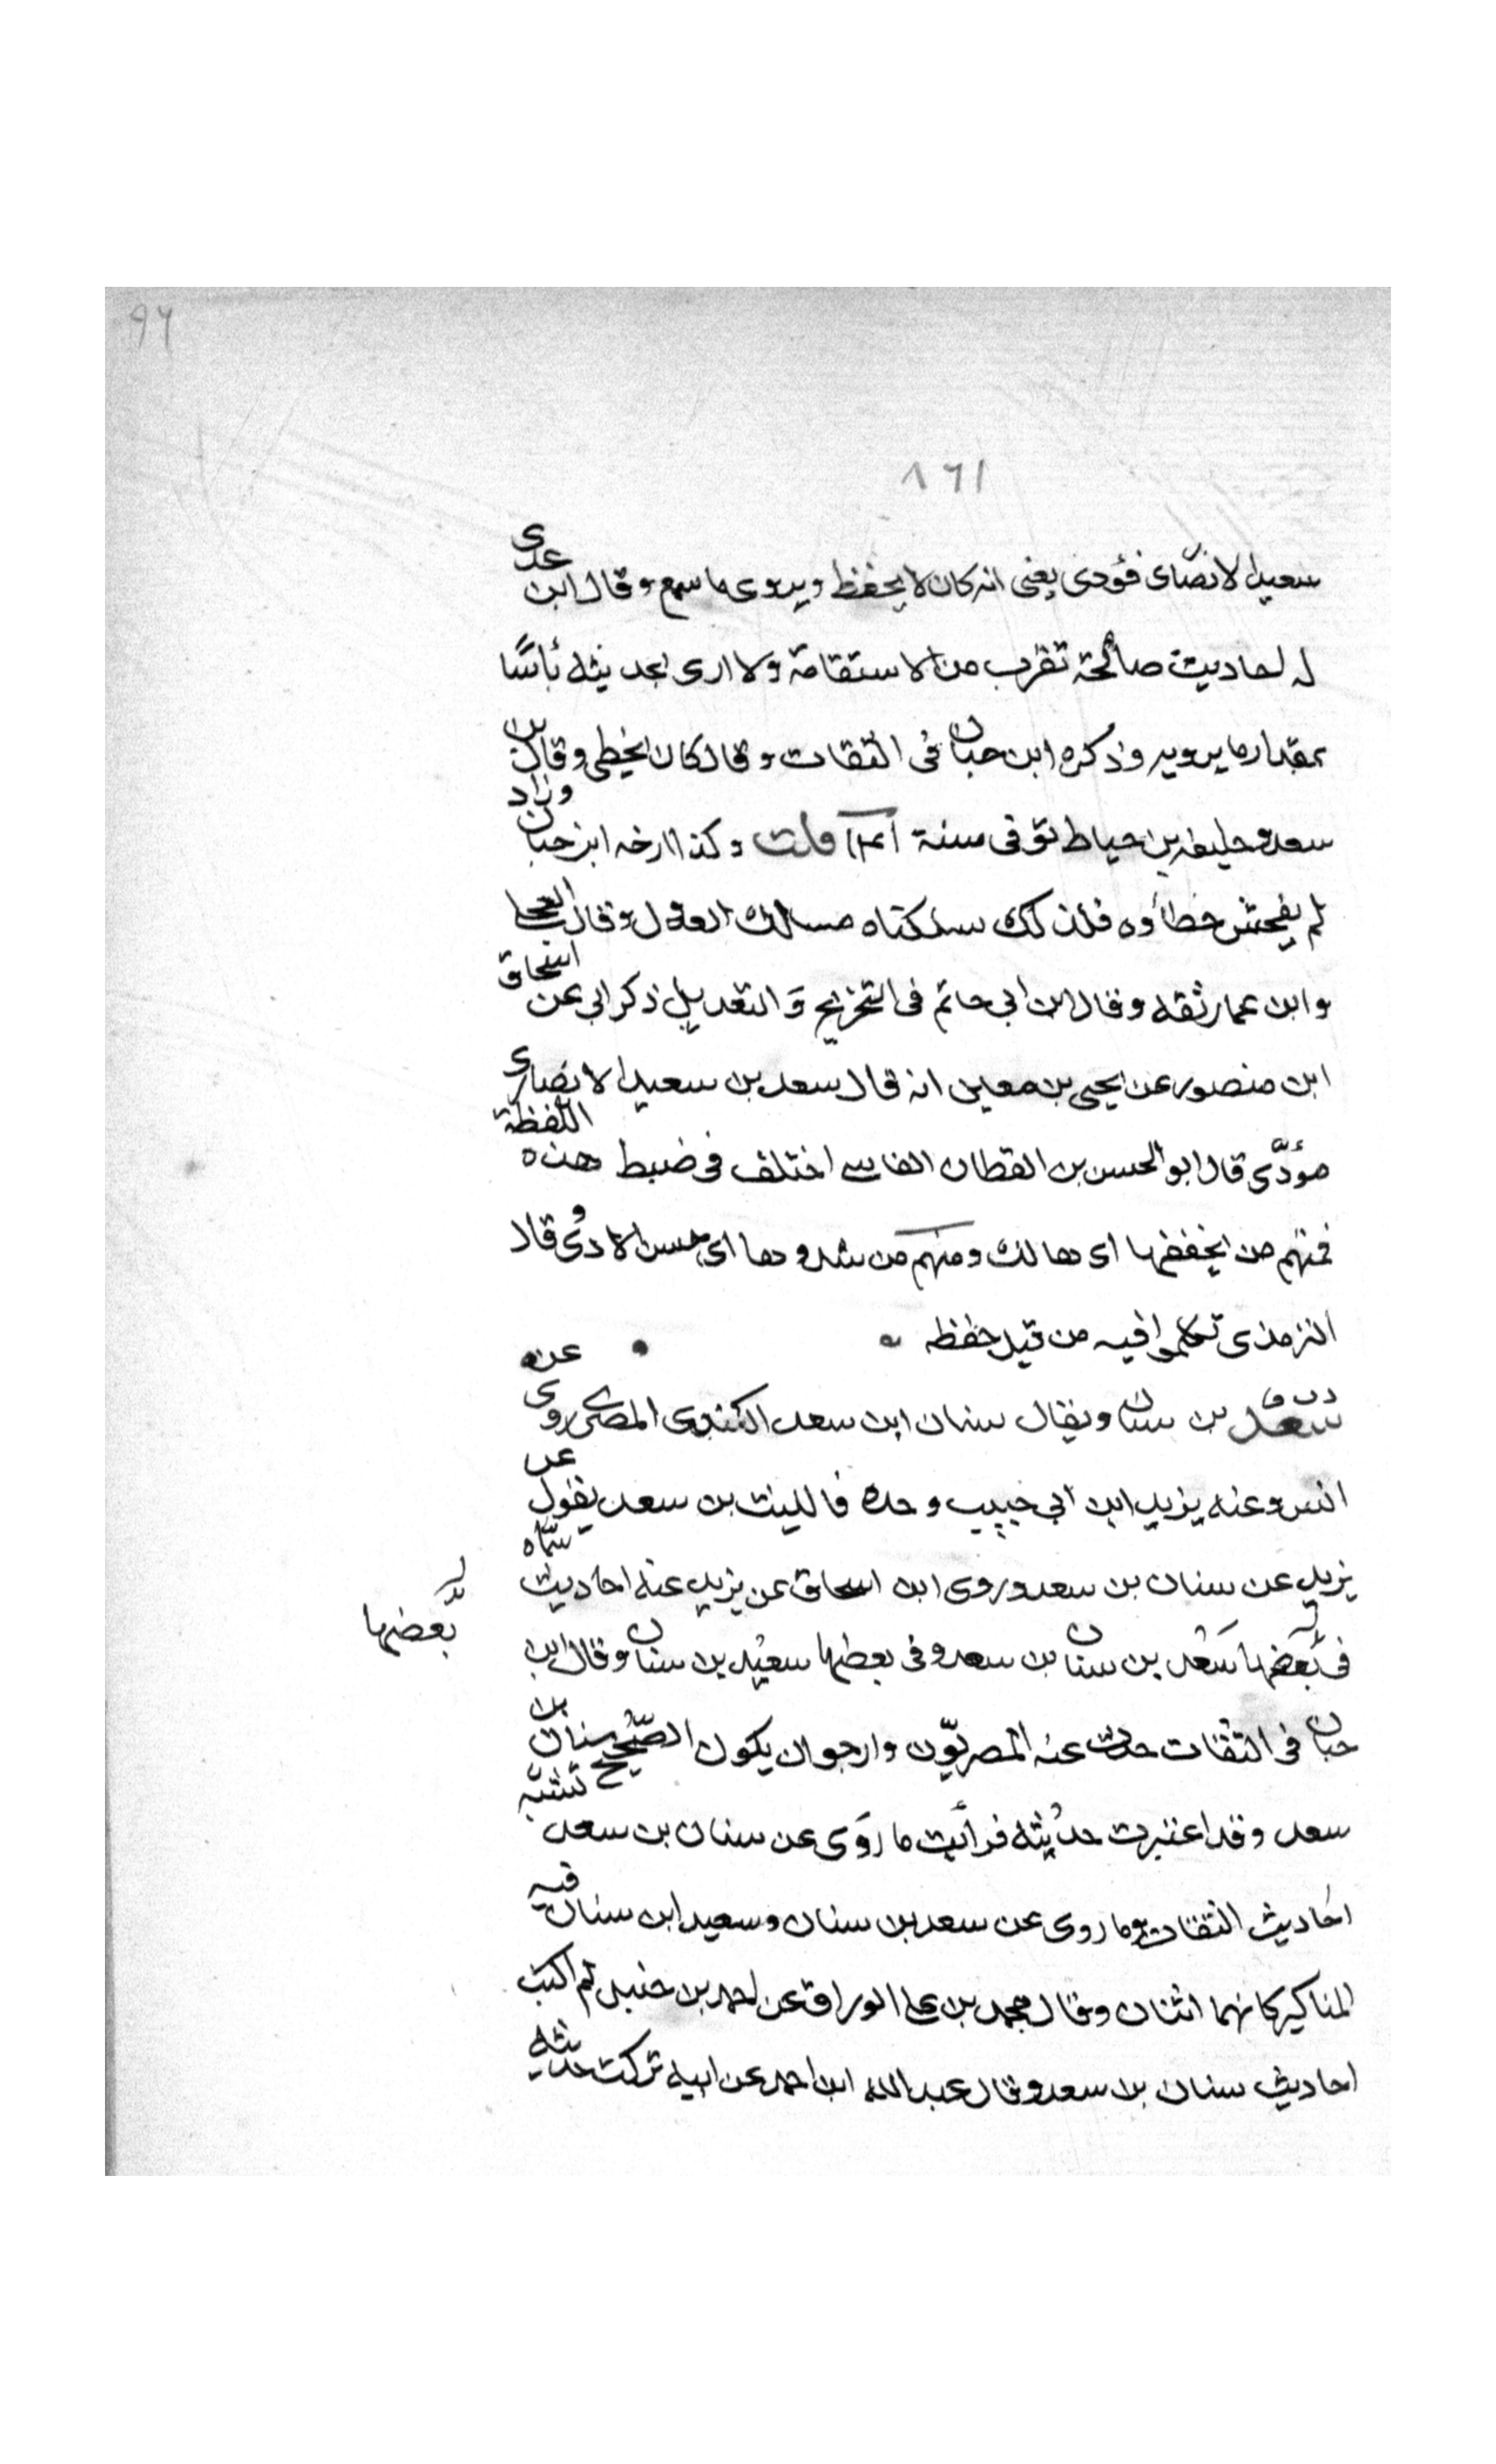 ٩٦
١٦٨
سعيد الانصاری فؤدی يعنی انه كان لا يحفظ ويروی ما سمع وقال ابن عدی
له احاديث صالحة تقرب من الاستقامة ولا اری بحديثه بأسًا
بمقدار ما يرويه وذكره ابن حبان فی الثقات وقال كان يخطی وقال بن
سعد وخليفه بن خياط توفی سنة ١٤١ قلت وكذا ارخه ابن حبان وزاد
لم يفحش خطأوه فلذلك سلكناه مسالك العدول وقال العجلی
وابن عمار ثقه وقال ابن ابی حاتم فی التخريج والتعديل ذكر ابی عن اسحاق
ابن منصور عن يحيی بن معين انه قال سعد بن سعيد الانصاری
مؤدّی قال ابو الحسن بن القطان الفاسی اختلف فی ضبط هذه اللفظة
فمنهم من يخففها ای هالك ومنهم من شددها ای حسن الاداء وقال
الترمذی تكلموا فيه من قبل حفظه
د ت ق
سعد بن سنان ويقال سنان ابن سعد الكندی المصری روی عن
انس وعنه يزيد ابن ابی حبيب وحده فالليث بن سعد يقول عن
يزيد عن سنان بن سعد وروی ابن اسحاق عن يزيد عنه احاديث سمّاه
فی بعضها سعد بن سنان بن سعد وفی بعضها سعيد بن سنان وقال ابن
بعضها
حبان فی الثقات حدث عنه المصريّون وارجو ان يكون الصّحيح سنان بن
سعد وقد اعتبرت حديثه فرأيت ما روی عن سنان بن سعد تشبه
احاديث الثقات وما روی عن سعد بن سنان وسعيد ابن سنان فيه
المناكير كانهما اثنان وقال محمد بن علی الوراق عن احمد بن حنبل لم اكتب
احاديث سنان بن سعد وقال عبد الله ابن احمد عن ابيه تركت حديثه